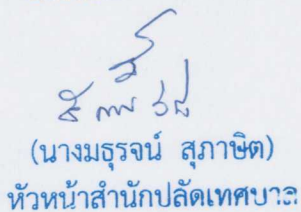 (นางมธุรจน์ สุภาษิต)
หัวหน้าสำนักปลัดเทศบาล